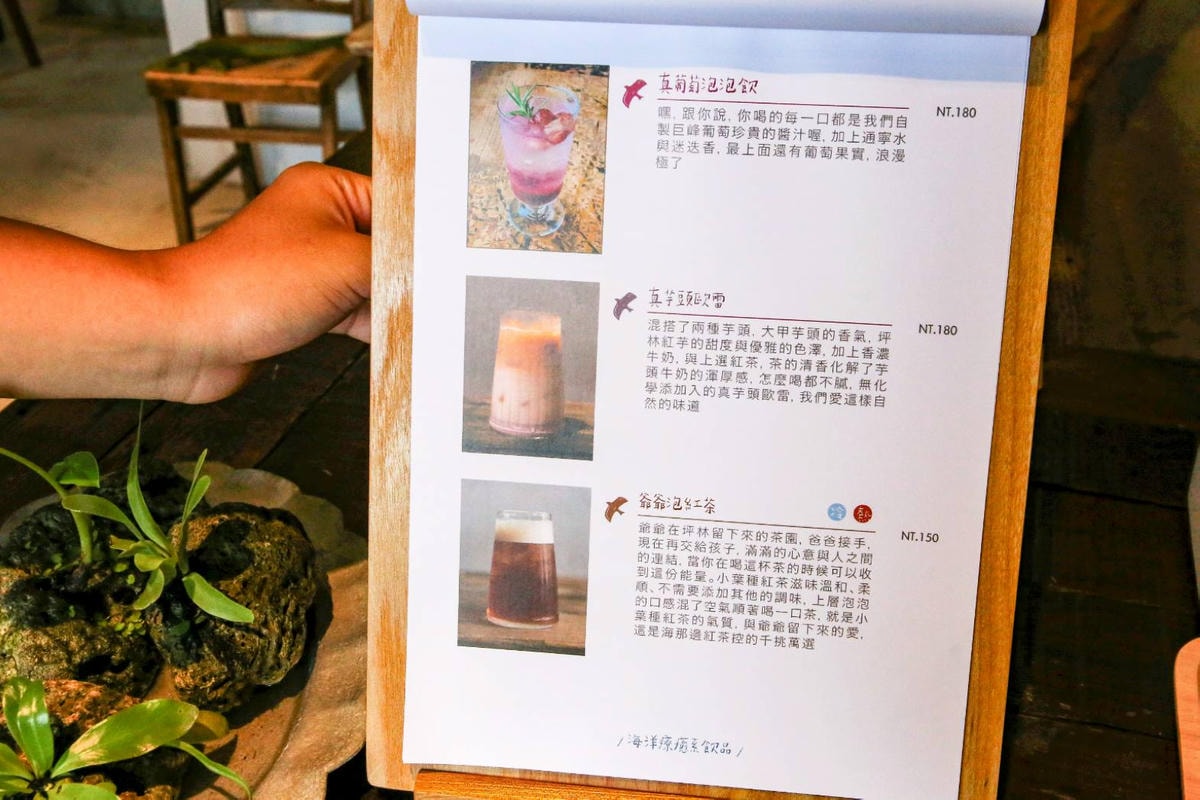 真葡萄泡泡飲
NT.180
嘿, 跟你說, 你喝的每一口都是我們自
製巨峰葡萄珍貴的醬汁喔, 加上通寧水
與迷迭香, 最上面還有葡萄果實, 浪漫
極了
真芋頭歐蕾
NT.180
混搭了兩種芋頭, 大甲芋頭的香氣, 坪
林紅芋的甜度與優雅的色澤, 加上香濃
牛奶, 與上選紅茶, 茶的清香化解了芋
頭牛奶的渾厚感, 怎麼喝都不膩, 無化
學添加入的真芋頭歐雷, 我們愛這樣自
然的味道
爺爺泡紅茶
冷 熱
NT.150
爺爺在坪林留下來的茶園, 爸爸接手,
現在再交給孩子, 滿滿的心意與人之間
的連結, 當你在喝這杯茶的時候可以收
到這份能量。小葉種紅茶滋味溫和、柔
順、不需要添加其他的調味, 上層泡泡
的口感混了空氣順著喝一口茶, 就是小
葉種紅茶的氣質, 與爺爺留下來的愛,
這是海那邊紅茶控的千挑萬選
/ 海洋療癒系飲品 /